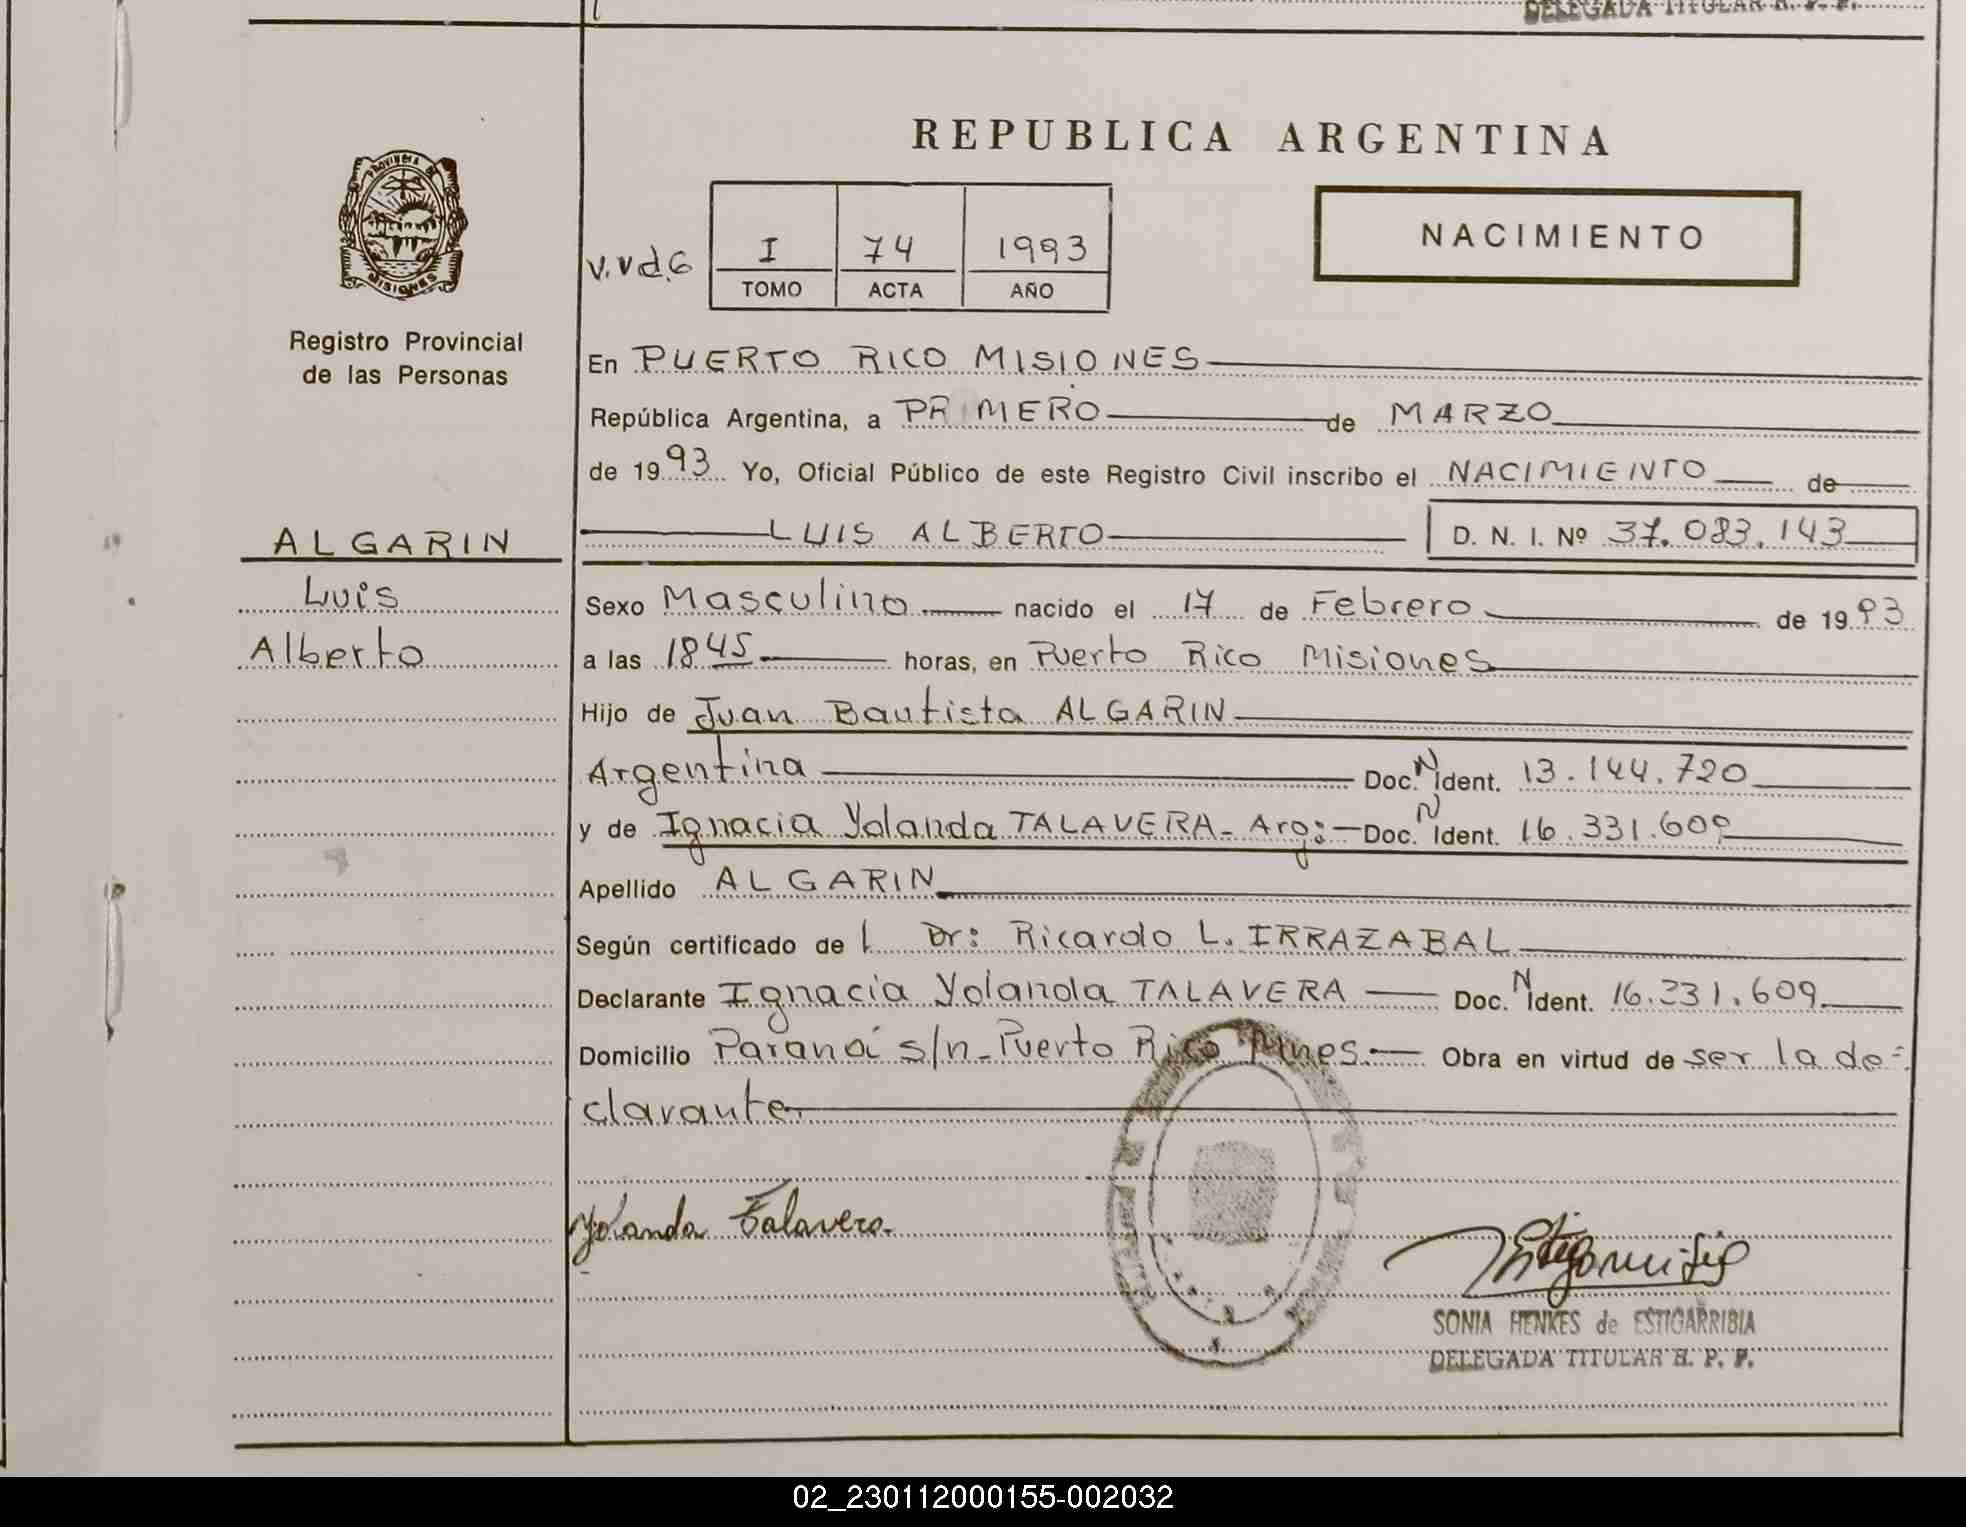 DELEGADA TITULAR R. P. P.
REPUBLICA ARGENTINA
PROVINCIA DE
MISIONES
Registro Provincial
de las Personas
V.V d.6
I 74 1993
TOMO ACTA AÑO
NACIMIENTO
En PUERTO RICO MISIONES
República Argentina, a PRIMERO de MARZO
de 1993 Yo, Oficial Público de este Registro Civil inscribo el NACIMIENTO de
LUIS ALBERTO D. N. I. Nº 37.083.143
ALGARIN
Luis
Alberto
Sexo Masculino nacido el 17 de Febrero de 1993
a las 18 45 horas, en Puerto Rico Misiones
Hijo de Juan Bautista ALGARIN
Argentina Doc. N Ident. 13.144.720
y de Ignacia Yolanda TALAVERA - Arg: Doc. N Ident. 16.331.609
Apellido ALGARIN
Según certificado de l Dr: Ricardo L. IRRAZABAL
Declarante Ignacia Yolanda TALAVERA Doc. N Ident. 16.331.609
Domicilio Paraná s/n - Puerto Rico Mnes. Obra en virtud de ser la de-
clarante.
Yolanda Talavera
SONIA HENKES de ESTIGARRIBIA
DELEGADA TITULAR R. P. P.
02_230112000155-002032